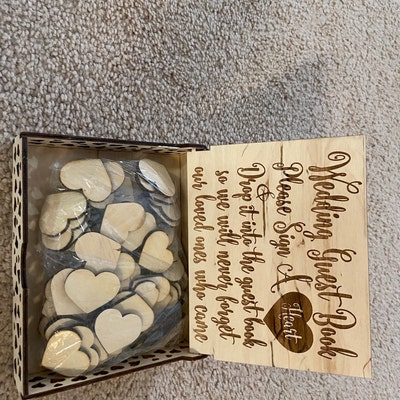 Wedding Guest Book
Please Sign A Heart
&
Drop it into the guest book
so we will never forget
our loved ones who came